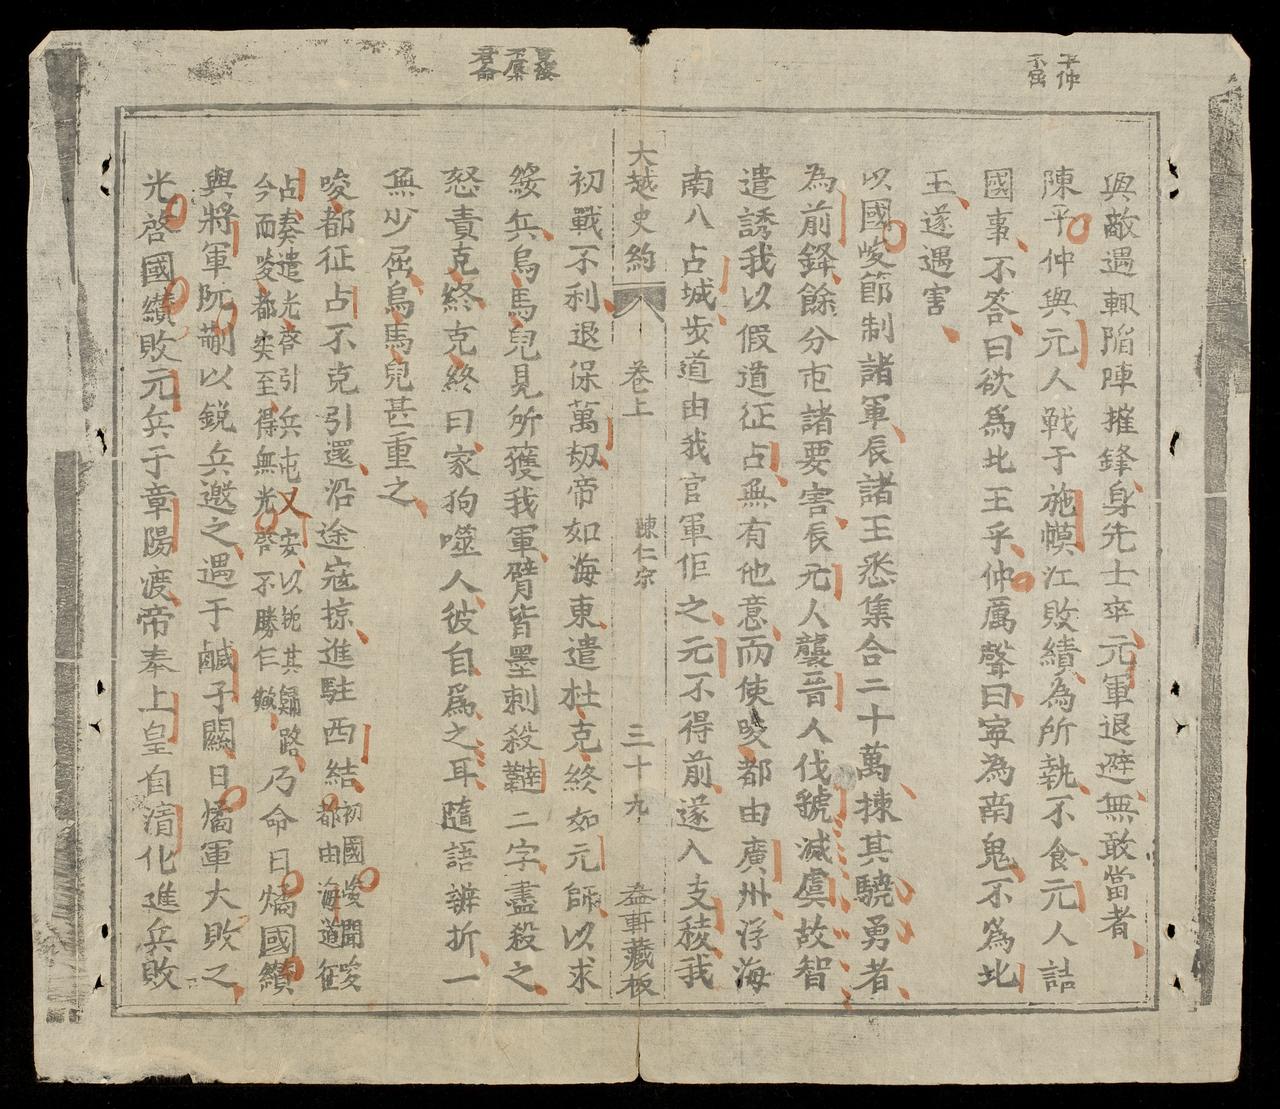 平仲
不屈
與敵遇輒陷陣摧鋒身先士卒元軍退避無敢當者
陳平仲與元人戰于施幙江敗績為所執不食元人詰
國事不答曰欲爲北王乎仲厲聲曰寜為南鬼不爲北
王遂遇害
以國峻節制諸軍辰諸王悉集合二十萬揀其驍勇者
為前鋒餘分屯諸要害辰元人襲晋人伐虢滅虞故智
遣誘我以假道征占無有他意而使唆都由廣州浮海
南八占城步道由我官軍佢之元不得前遂入支稜我
大越史約 卷上 陳仁宗 三十九 益軒藏板
初戰不利退保萬刼帝如海東遣杜克終如元師以求
綏兵烏馬兒見所獲我軍臂皆墨刺殺韃二字盡殺之
怒責克終克終曰家狗噬人彼自爲之耳隨語辨折一
無少屈烏馬兒甚重之
唆都征占不克引還沿途寇掠進駐西結初國峻聞唆
都由海道征
占奏遣光啓引兵屯乂安以扼其歸路
今而唆都突至得無光啓不勝仁歟乃命日燏國纉
與將軍阮蒯以銳兵邀之遇于鹹子關日燏軍大敗之
光啓國纉敗元兵于章陽渡帝奉上皇自清化進兵敗
君命